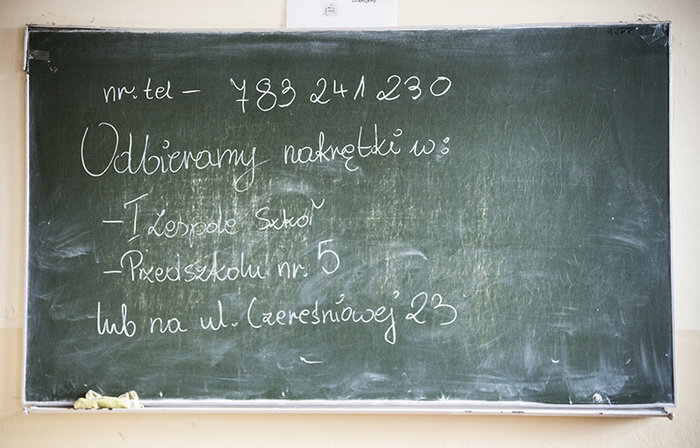 nr. tel – 783 241 230
Odbieramy nakrętki w:
– I Zespole Szkół
– Przedszkolu nr. 5
lub na ul. Czereśniowej 23